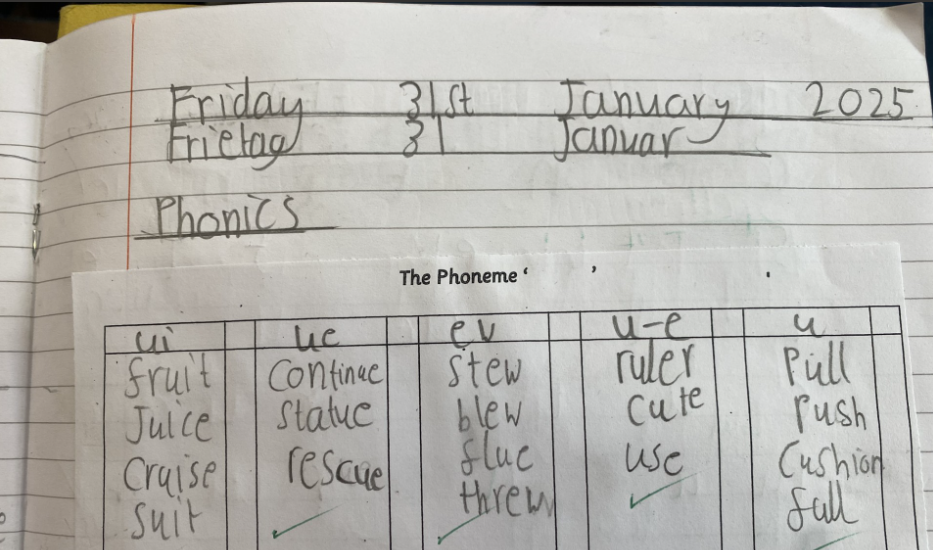 Friday 31st January 2025
Frietag 31 Januar
Phonics
The Phoneme ‘ ’ .
ui ue ev u-e u
fruit Continue stew ruler Pull
Juice statue blew cute Push
Cruise rescue flue use Cushion
suit threw full